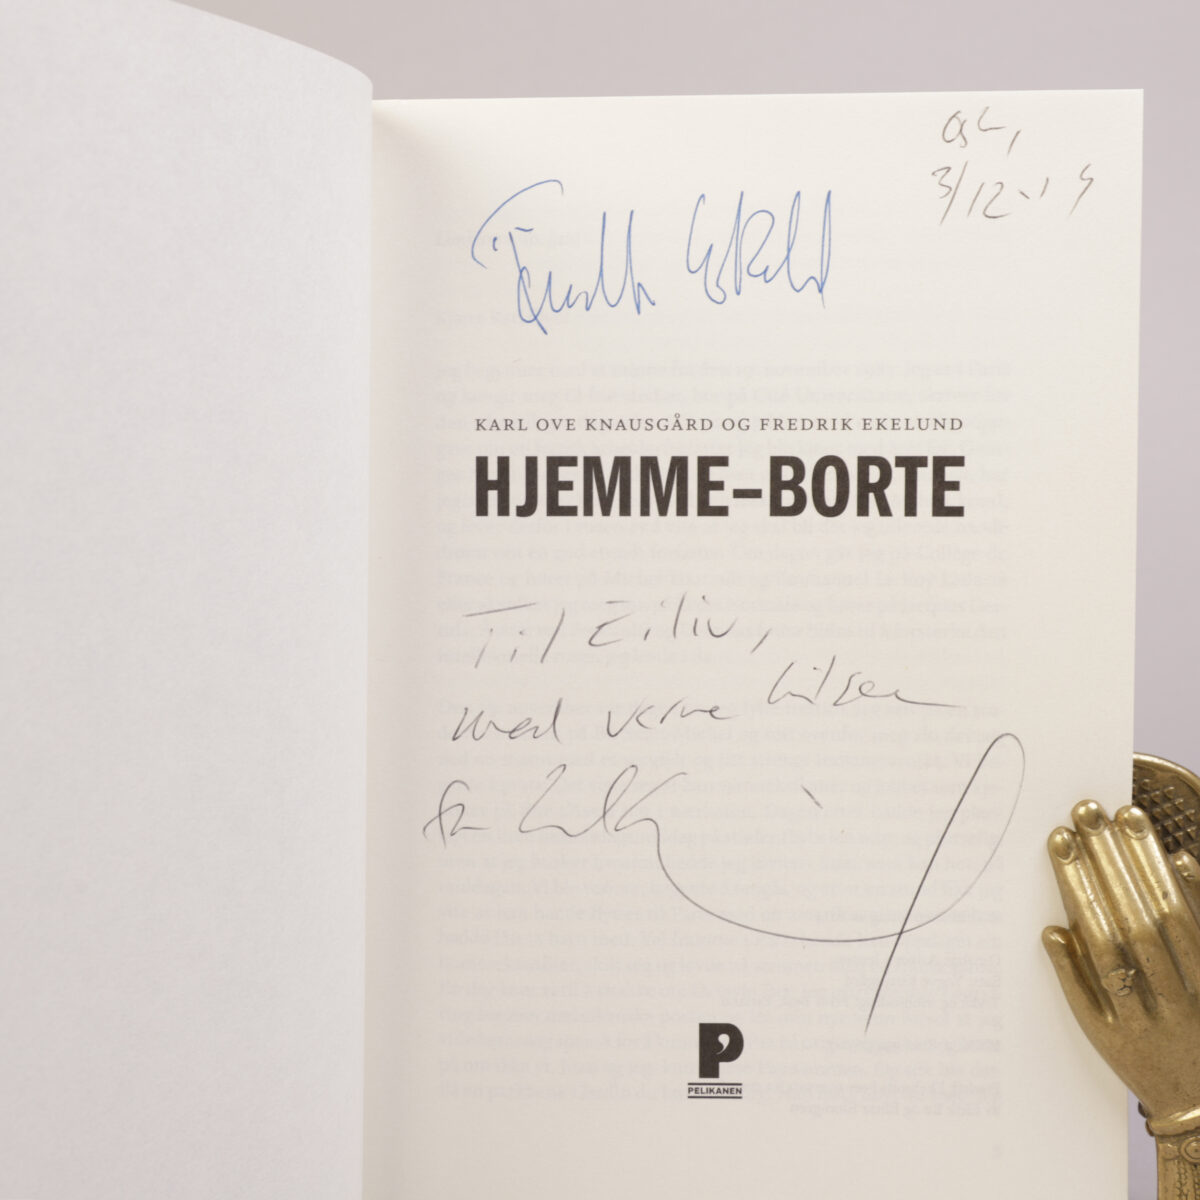 Osl,
3/12-14
Fredrik Ekelund
KARL OVE KNAUSGÅRD OG FREDRIK EKELUND
HJEMME–BORTE
Til Eiliv,
med varme hilsen
fra
P
PELIKANEN